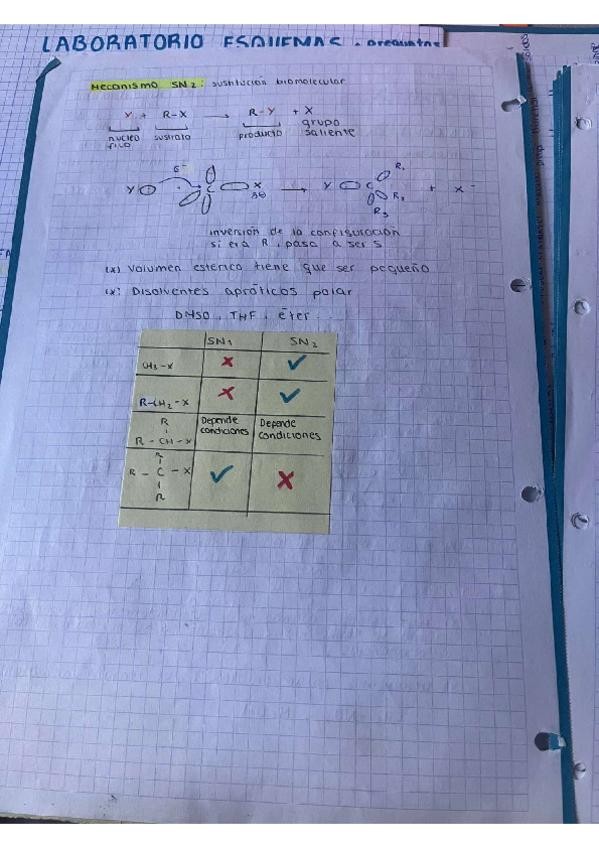 LABORATORIO ESQUEMAS . preguntas
Mecanismo SN2: sustitución biomolecular
Y + R-X → R-Y + X
nucleo fílo sustrato producto grupo saliente
Y C X → Y C R1 R2 R3 + X-
inversión de la configuración
si era R, pasa a ser S
(*) Volumen estérico tiene que ser pequeño
(*) Disolventes apróticos polar
DMSO, THF, éter...
SN1 SN2
CH3-X ✗ ✓
R-CH2-X ✗ ✓
R
R - CH - X Depende condiciones Depende condiciones
R
R - C - X ✓ ✗
R